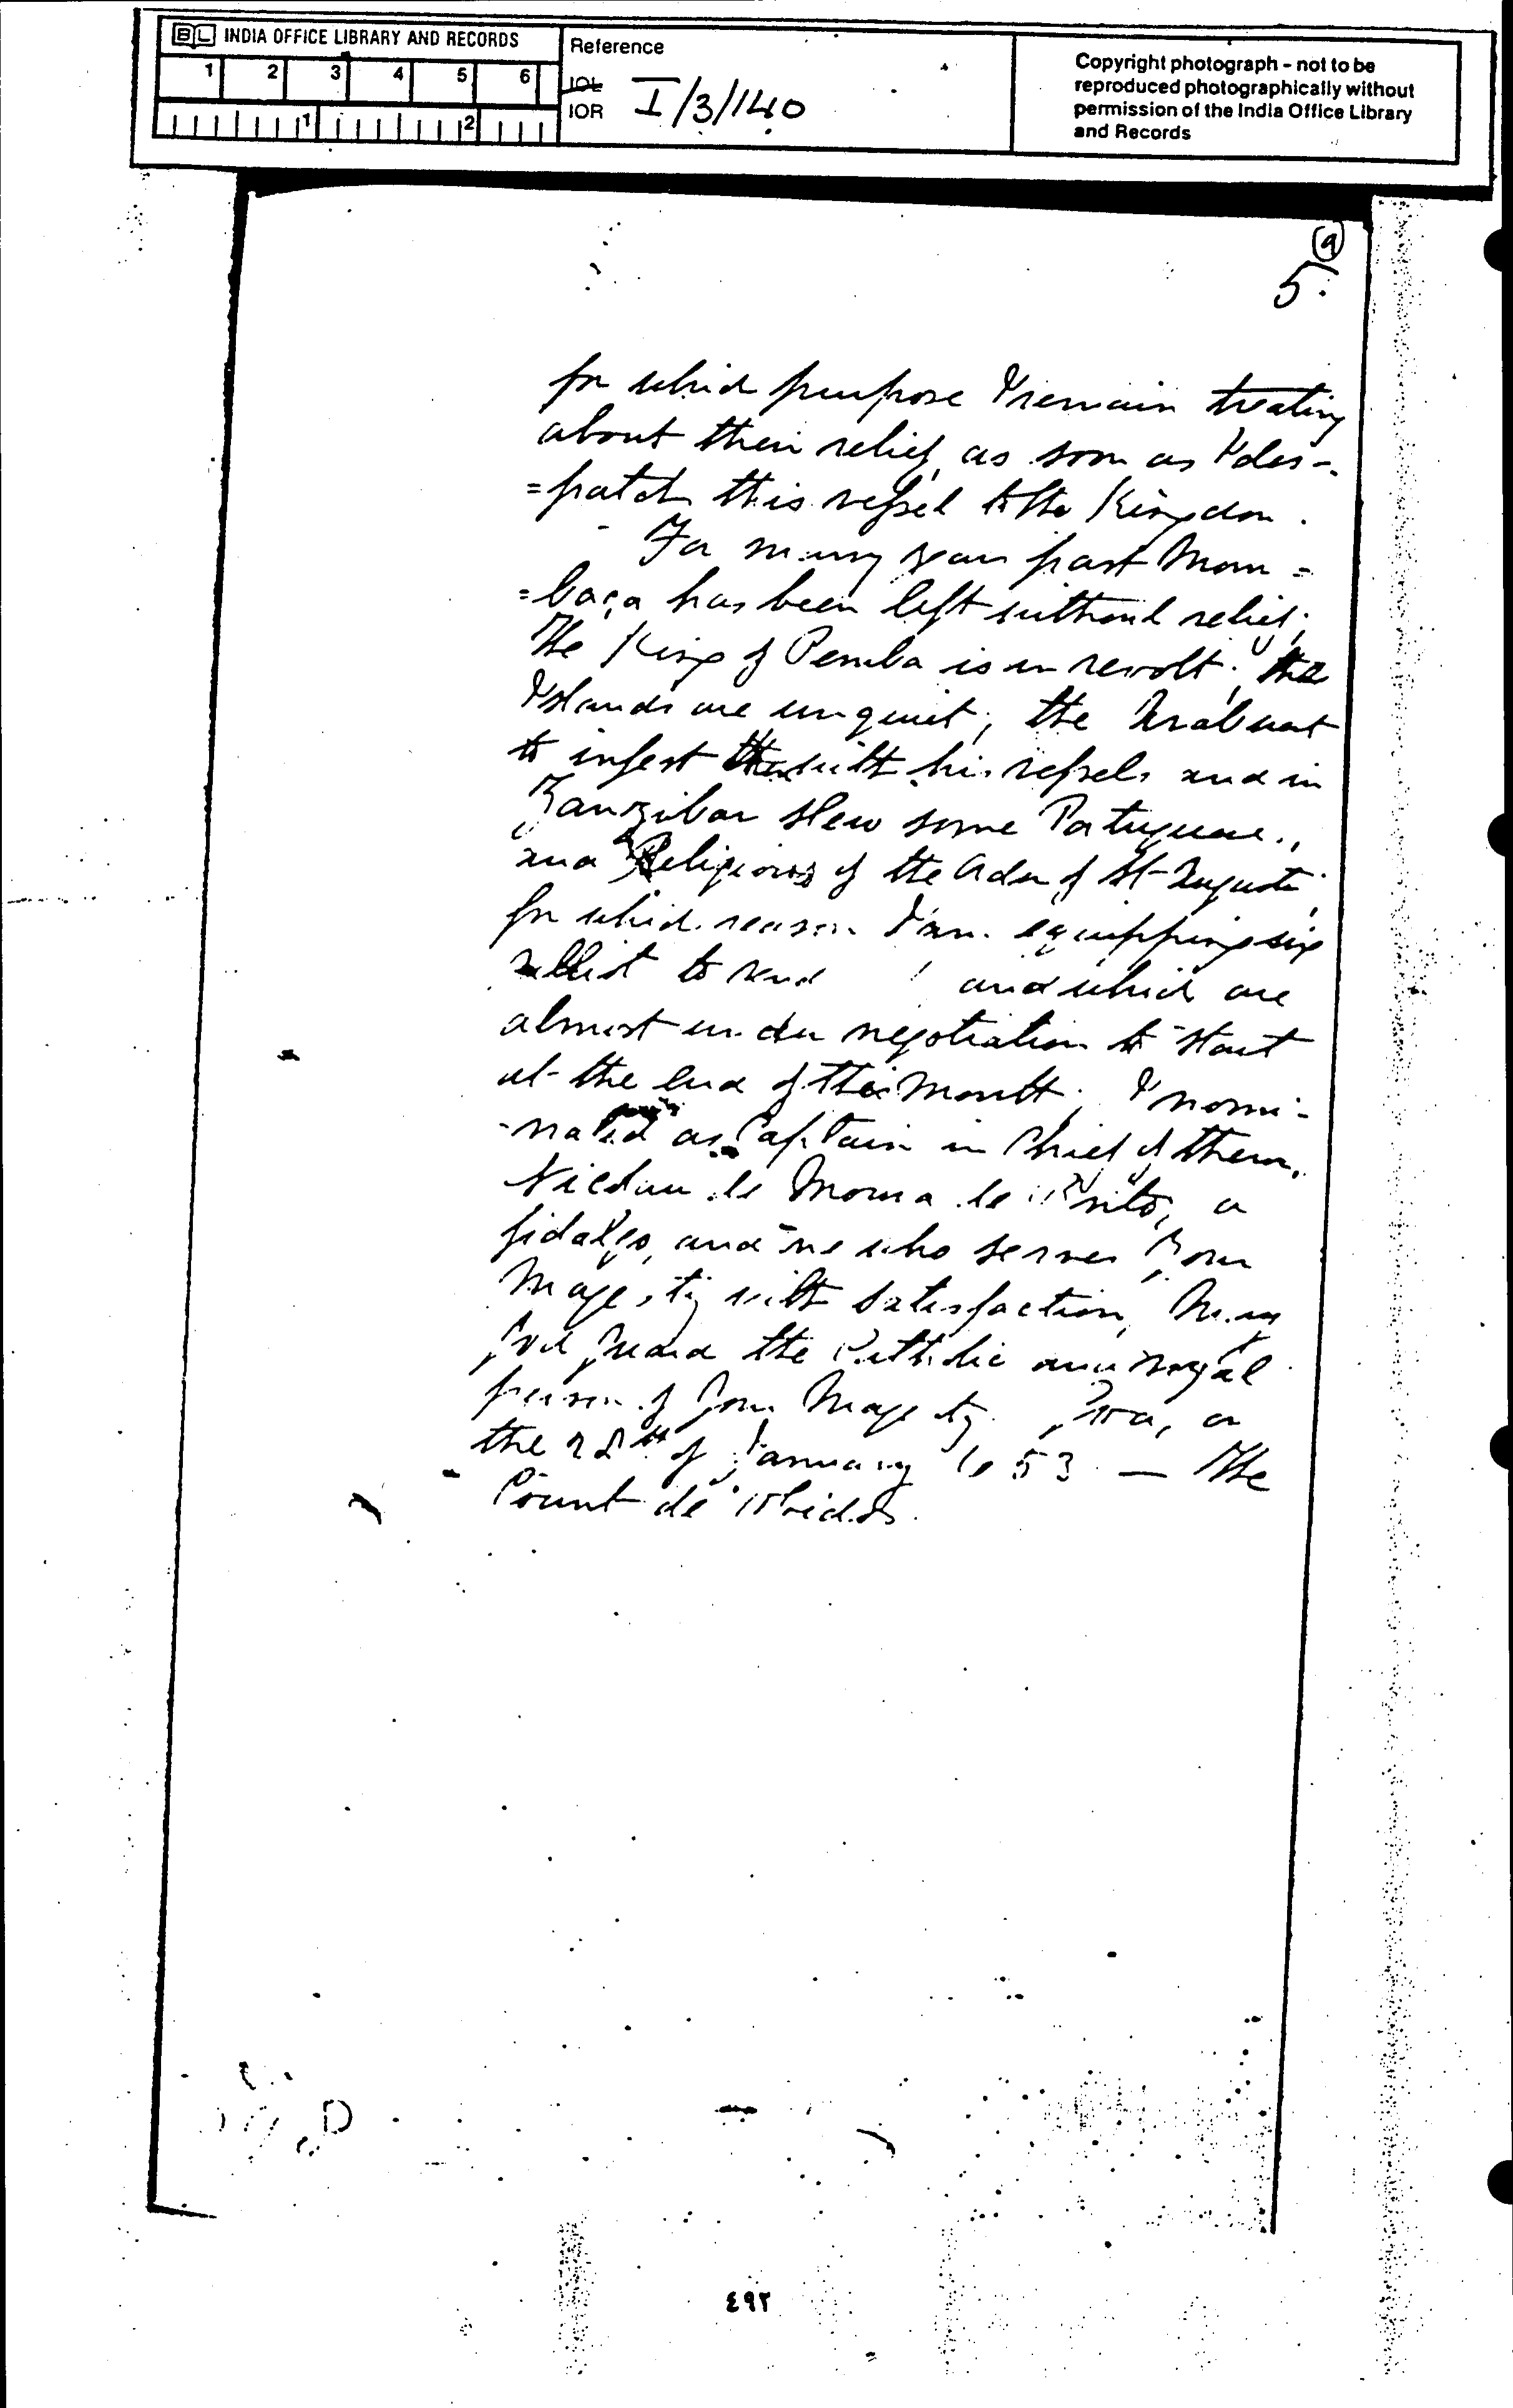 BL INDIA OFFICE LIBRARY AND RECORDS
1 2 3 4 5 6
1 2
Reference
IOL
IOR I/3/140
Copyright photograph - not to be
reproduced photographically without
permission of the India Office Library
and Records
(a)
5.
for which purpose I remain treating
about their relief, as soon as I des-
=patch this vessel to the Kingdom.
For many years past Mom=
=baça has been left without relief;
The King of Pemba is in revolt; the
Islands are unquiet; the Arab went
to infest them with his vessels and in
Zanzibar slew some Portuguese,
and Religious of the Order of St Augustin
for which reason I am equipping six
to send and which are
almost under negotiation to start
at the end of this month; I nomi-
-nated as Captain in Chief of them,
de Moura de Brito, a
fidalgo, and one who serves Your
Majesty with satisfaction, May
God guard the Catholic and royal
person of Your Majesty. Goa, on
the 28th of January 1653 — The
Count de Obidos.
D
٤٩٢